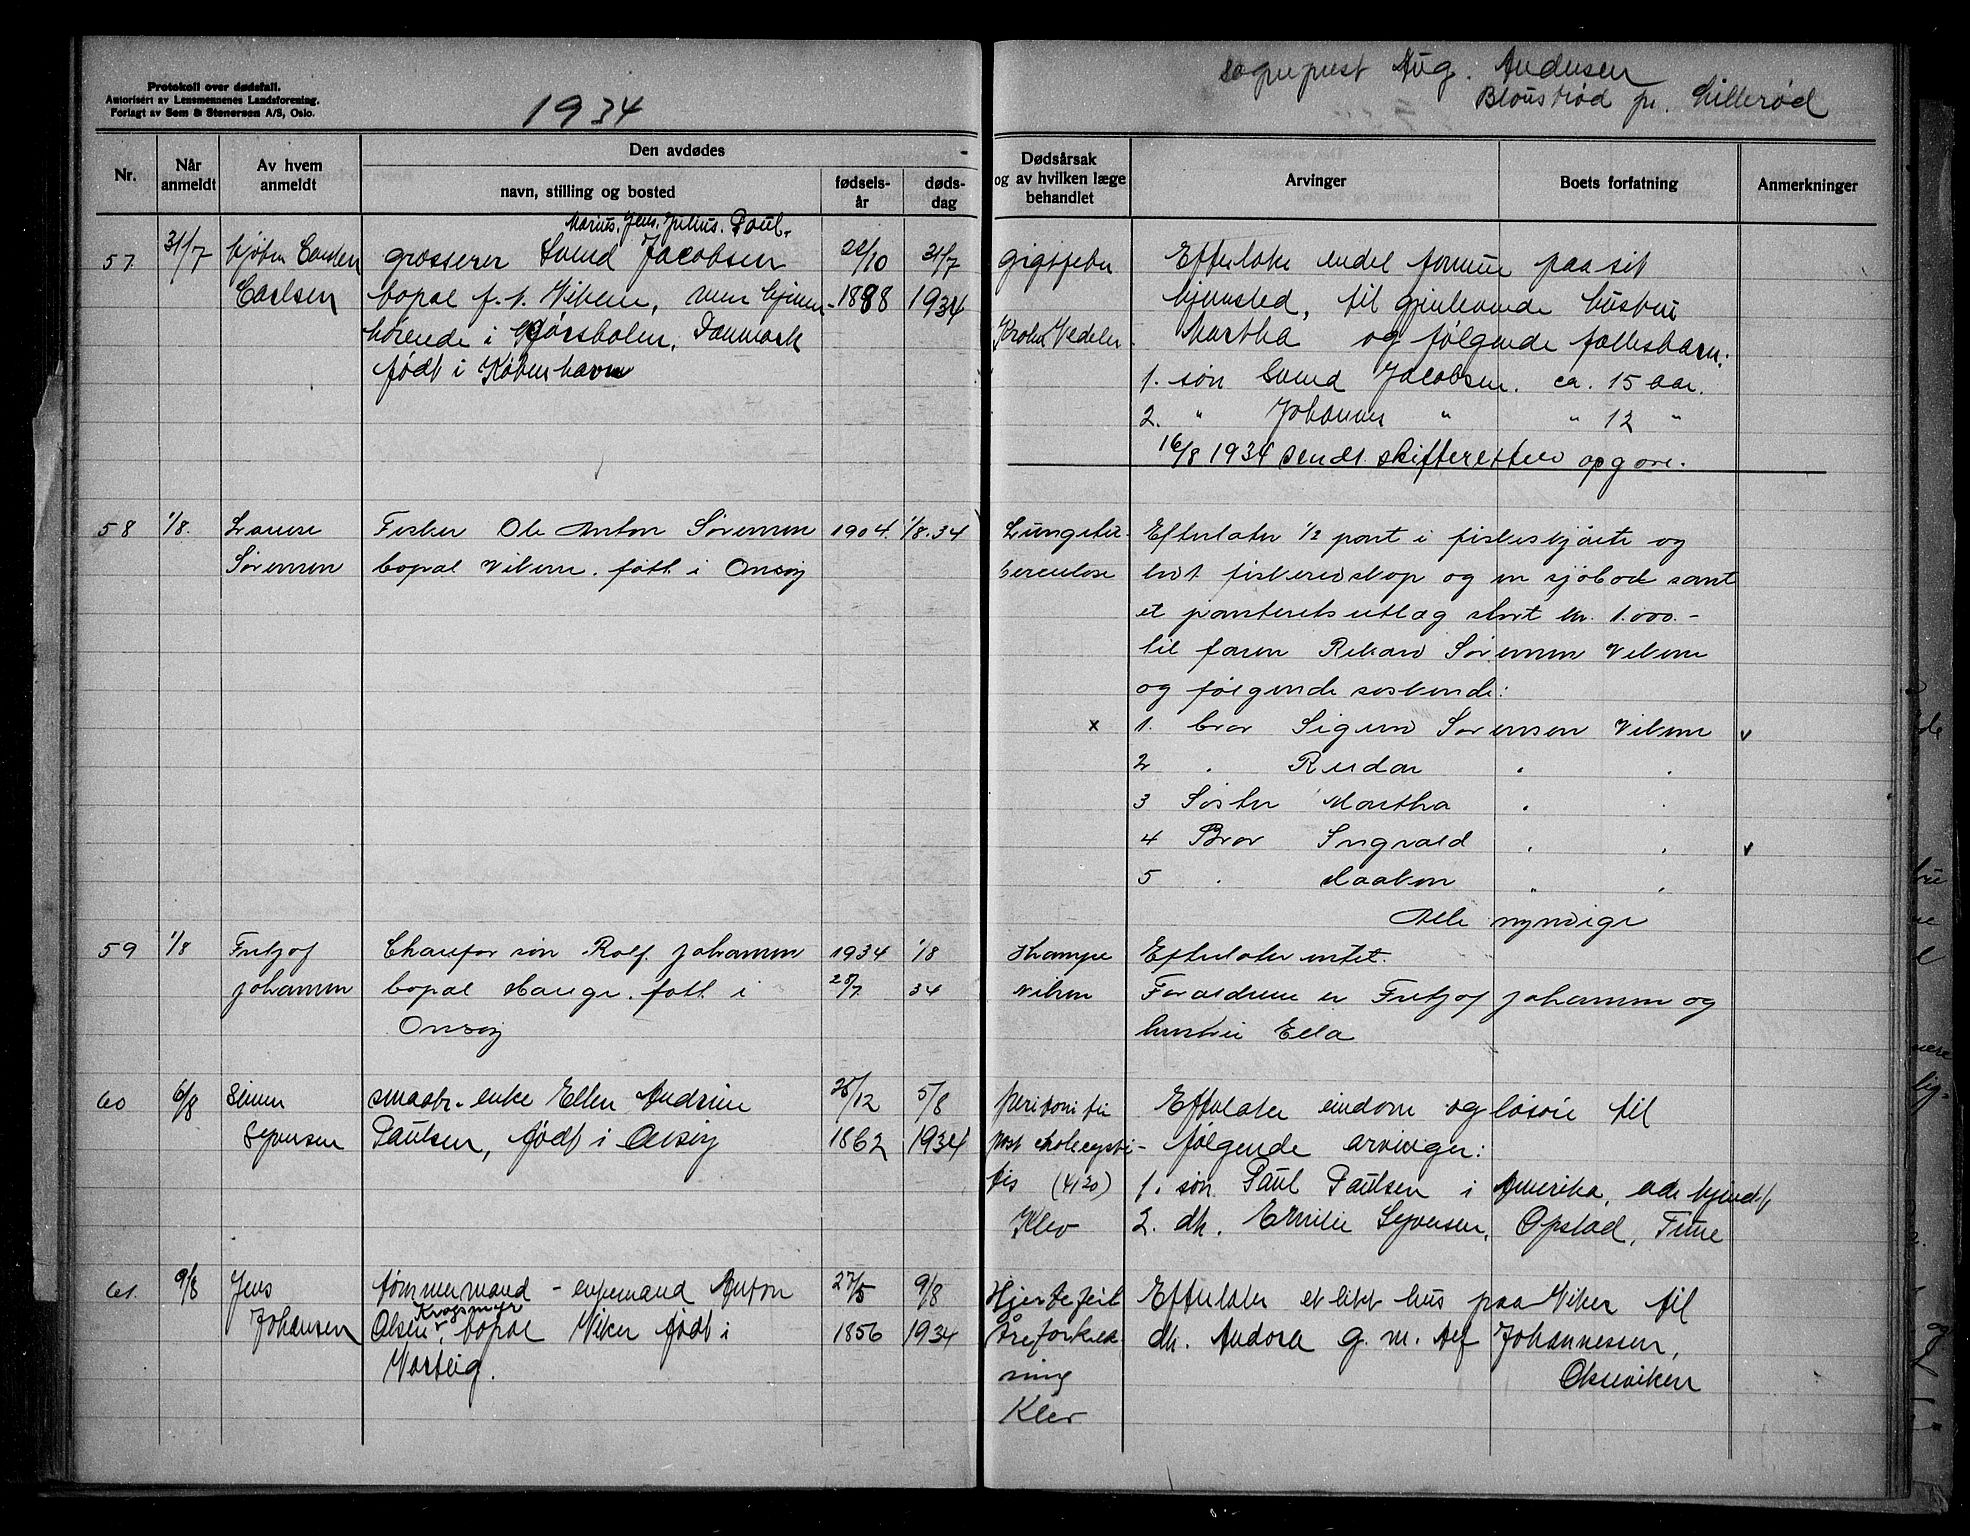 Protokoll over dødsfall.
Autorisert av Lensmennenes Landsforening.
Forlagt av Sem & Stenersen A/S, Oslo.
1934
Sogneprest Aug. Andersen
Bloustrød pr. Lillerød
Nr.
Når anmeldt
Av hvem anmeldt
Den avdødes
navn, stilling og bosted
fødsels-år
døds-dag
Dødsårsak og av hvilken læge behandlet
Arvinger
Boets forfatning
Anmerkninger
57 31/7
Carlsen
Marius. Jens. Julius. Poul.
grosserer Svend Jacobsen
bopæl f. t. Vikene, men hjemme-
hørende i Hørsholm, Danmark
født i København
22/10 1888
31/7 1934
Krohn Vedeler.
Efterlater endel formue paa sit
hjemsted, til gjenlevende hustru
Martha og følgende fellesbarn:
1. søn Svend Jacobsen. ca. 15 aar.
2. " Johannes " " 12 "
16/8 1934 sendt skifteretten opgave.
58 1/8.
Laura
Sørensen
Fisker Ole Anton Sørensen
bopæl Vikene. født i Onsøy
1904.
1/8.34
Lungetu-
berculose
Efterlater 1/2 part i fiskeskjøite og
litt fiskeredskap og en sjøbod samt
et panteretsutlæg stort kr. 1.000.-
til faren Rikard Sørensen Vikene
og følgende søskende:
x 1. bror Sigurd Sørensen Vikene v
2 . Reidar . .
3 Søster Martha . .
4 Bror Ingvald . . v
5 . Haakon . .
Alle myndige
59 1/8
Fritjof
Johansen
Chaufør søn Rolf Johansen
bopæl Hauge. født i
Onsøy
1934
28/7
1/8
34
Krampe
Nilsen
Efterlater intet.
Forældrene er Fritjof Johansen og
hustru Ella
60 6/8
Simen
Syversen
smaabr. enke Ellen Andrine
Paulsen, født i Onsøy
25/12 1862
5/8 1934
peritonitis
post cholecysti-
tis (4120)
Klev
Efterlater eiendom og løsøre til
følgende arvinger:
1. søn Paul Paulsen i Amerika, adr. ukjendt
2. dtr. Emilie Syversen, Opstad, Tune
61. 9/8
Jens
Johansen
tømmermand - enkemand Anton
Krogsmyr
Olsen, bopæl Viker født i
Varteig.
27/5 1856
9/8 1934
Hjertefeil
Åreforkalk-
ning
Klev
Efterlater et litet hus paa Viker til
dtr. Andora g. m. Alf Johannessen,
Okseviken